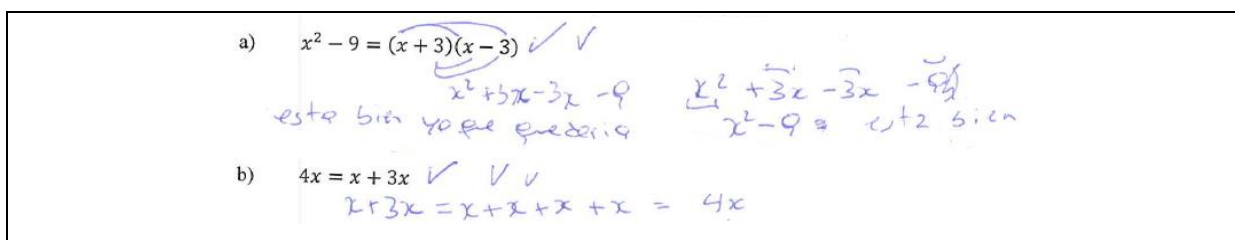 a) x² − 9 = (x + 3)(x − 3) ✓ V
x² +3x −3x −9 x² +3x −3x −9
esta bien ya que quedaria x² −9 = esta bien
b) 4x = x + 3x ✓ V V
x+3x = x+x+x+x = 4x